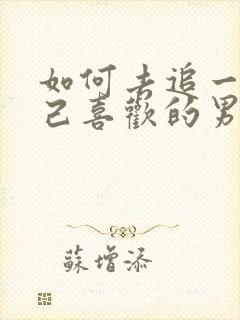 如何去追一
己喜歡的男
蘇增添